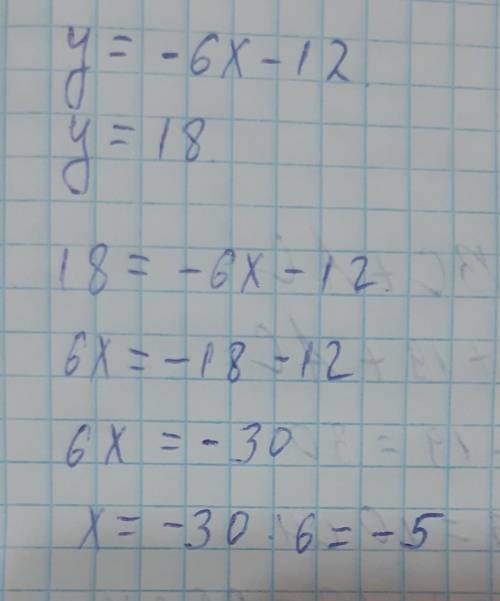 y = -6x - 12
y = 18
18 = -6x - 12
6x = -18 - 12
6x = -30
x = -30 : 6 = -5